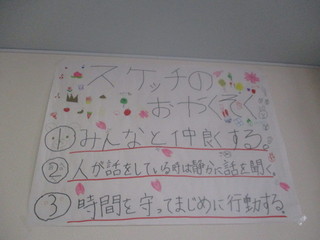 スケッチの
おやくそく
① みんなと仲良くする。
② 人が話をしている時は静かに話を聞く。
③ 時間を守ってまじめに行動する。